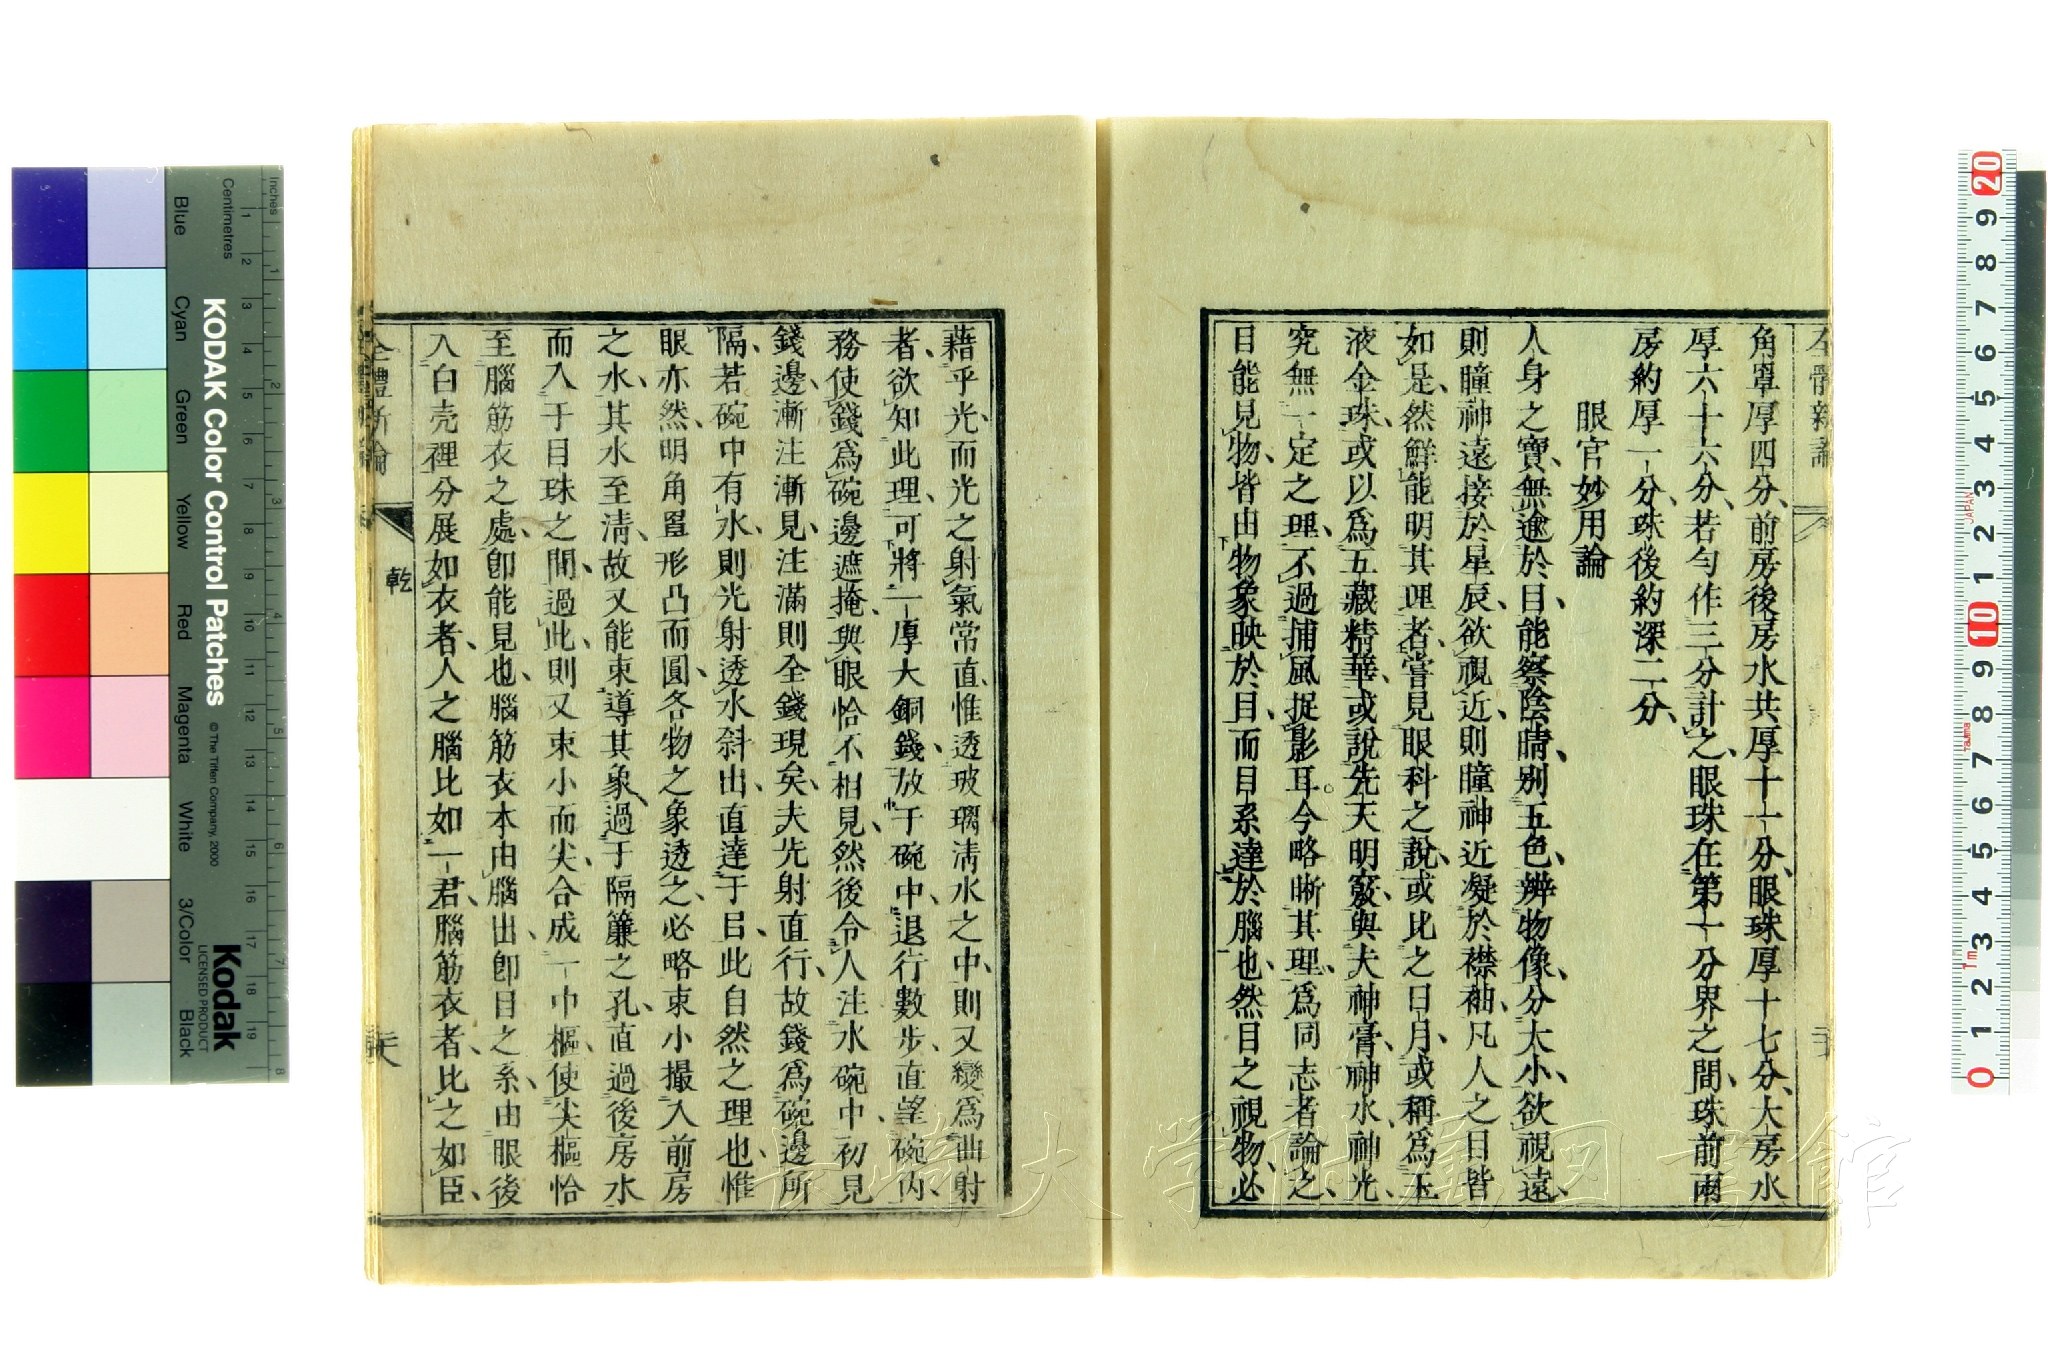 全體新論
角罩厚四分、前房後房水共厚十一分、眼珠厚十七分、大房水
厚六十六分、若勻作三分計之、眼珠在第一分界之間、珠前兩
房約厚一分、珠後約深二分、
眼官妙用論
人身之寶、無逾於目、能察陰晴、別五色、辨物像、分大小、欲視遠、
則瞳神遠接於星辰、欲視近、則瞳神近凝於襟袖、凡人之目皆
如是、然鮮能明其理者、嘗見眼科之說、或比之日月、或稱爲玉
液金珠、或以爲五藏精華、或說先天明竅、與夫神膏、神水、神光、
究無一定之理、不過捕風捉影耳。今略晰其理、爲同志者論之、
目能見物、皆由物象映於目、而目系達於腦也、然目之視物、必
藉乎光、而光之射氣常直、惟透玻璃淸水之中、則又變爲曲射
者、欲知此理、可將一厚大銅錢、放于碗中、退行數步、直望碗內、
務使錢爲碗邊遮掩、與眼恰不相見、然後令人注水碗中、初見
錢邊、漸注漸見、注滿則全錢現矣、夫光射直行、故錢爲碗邊所
隔、若碗中有水、則光射透水斜出、直達于目、此自然之理也、惟
眼亦然、明角罩形凸而圓、各物之象透之、必略束小撮入前房
之水、其水至淸、故又能束導其象、過于隔簾之孔、直過後房水
而入于目珠之間、過此則又束小而尖、合成一中樞、使尖樞恰
至腦筋衣之處、卽能見也、腦筋衣本由腦出、卽目之系、由眼後
入白壳裡分展如衣者、人之腦比如一君、腦筋衣者、比之如臣、
全體新論
乾
二十六
Inches
Centimetres
Blue
Cyan
Green
Yellow
Red
Magenta
White
3/Color
Black
KODAK Color Control Patches
© The Tiffen Company, 2000
Kodak
LICENSED PRODUCT
JAPAN
Tajima
1m
長崎大学附属図書館